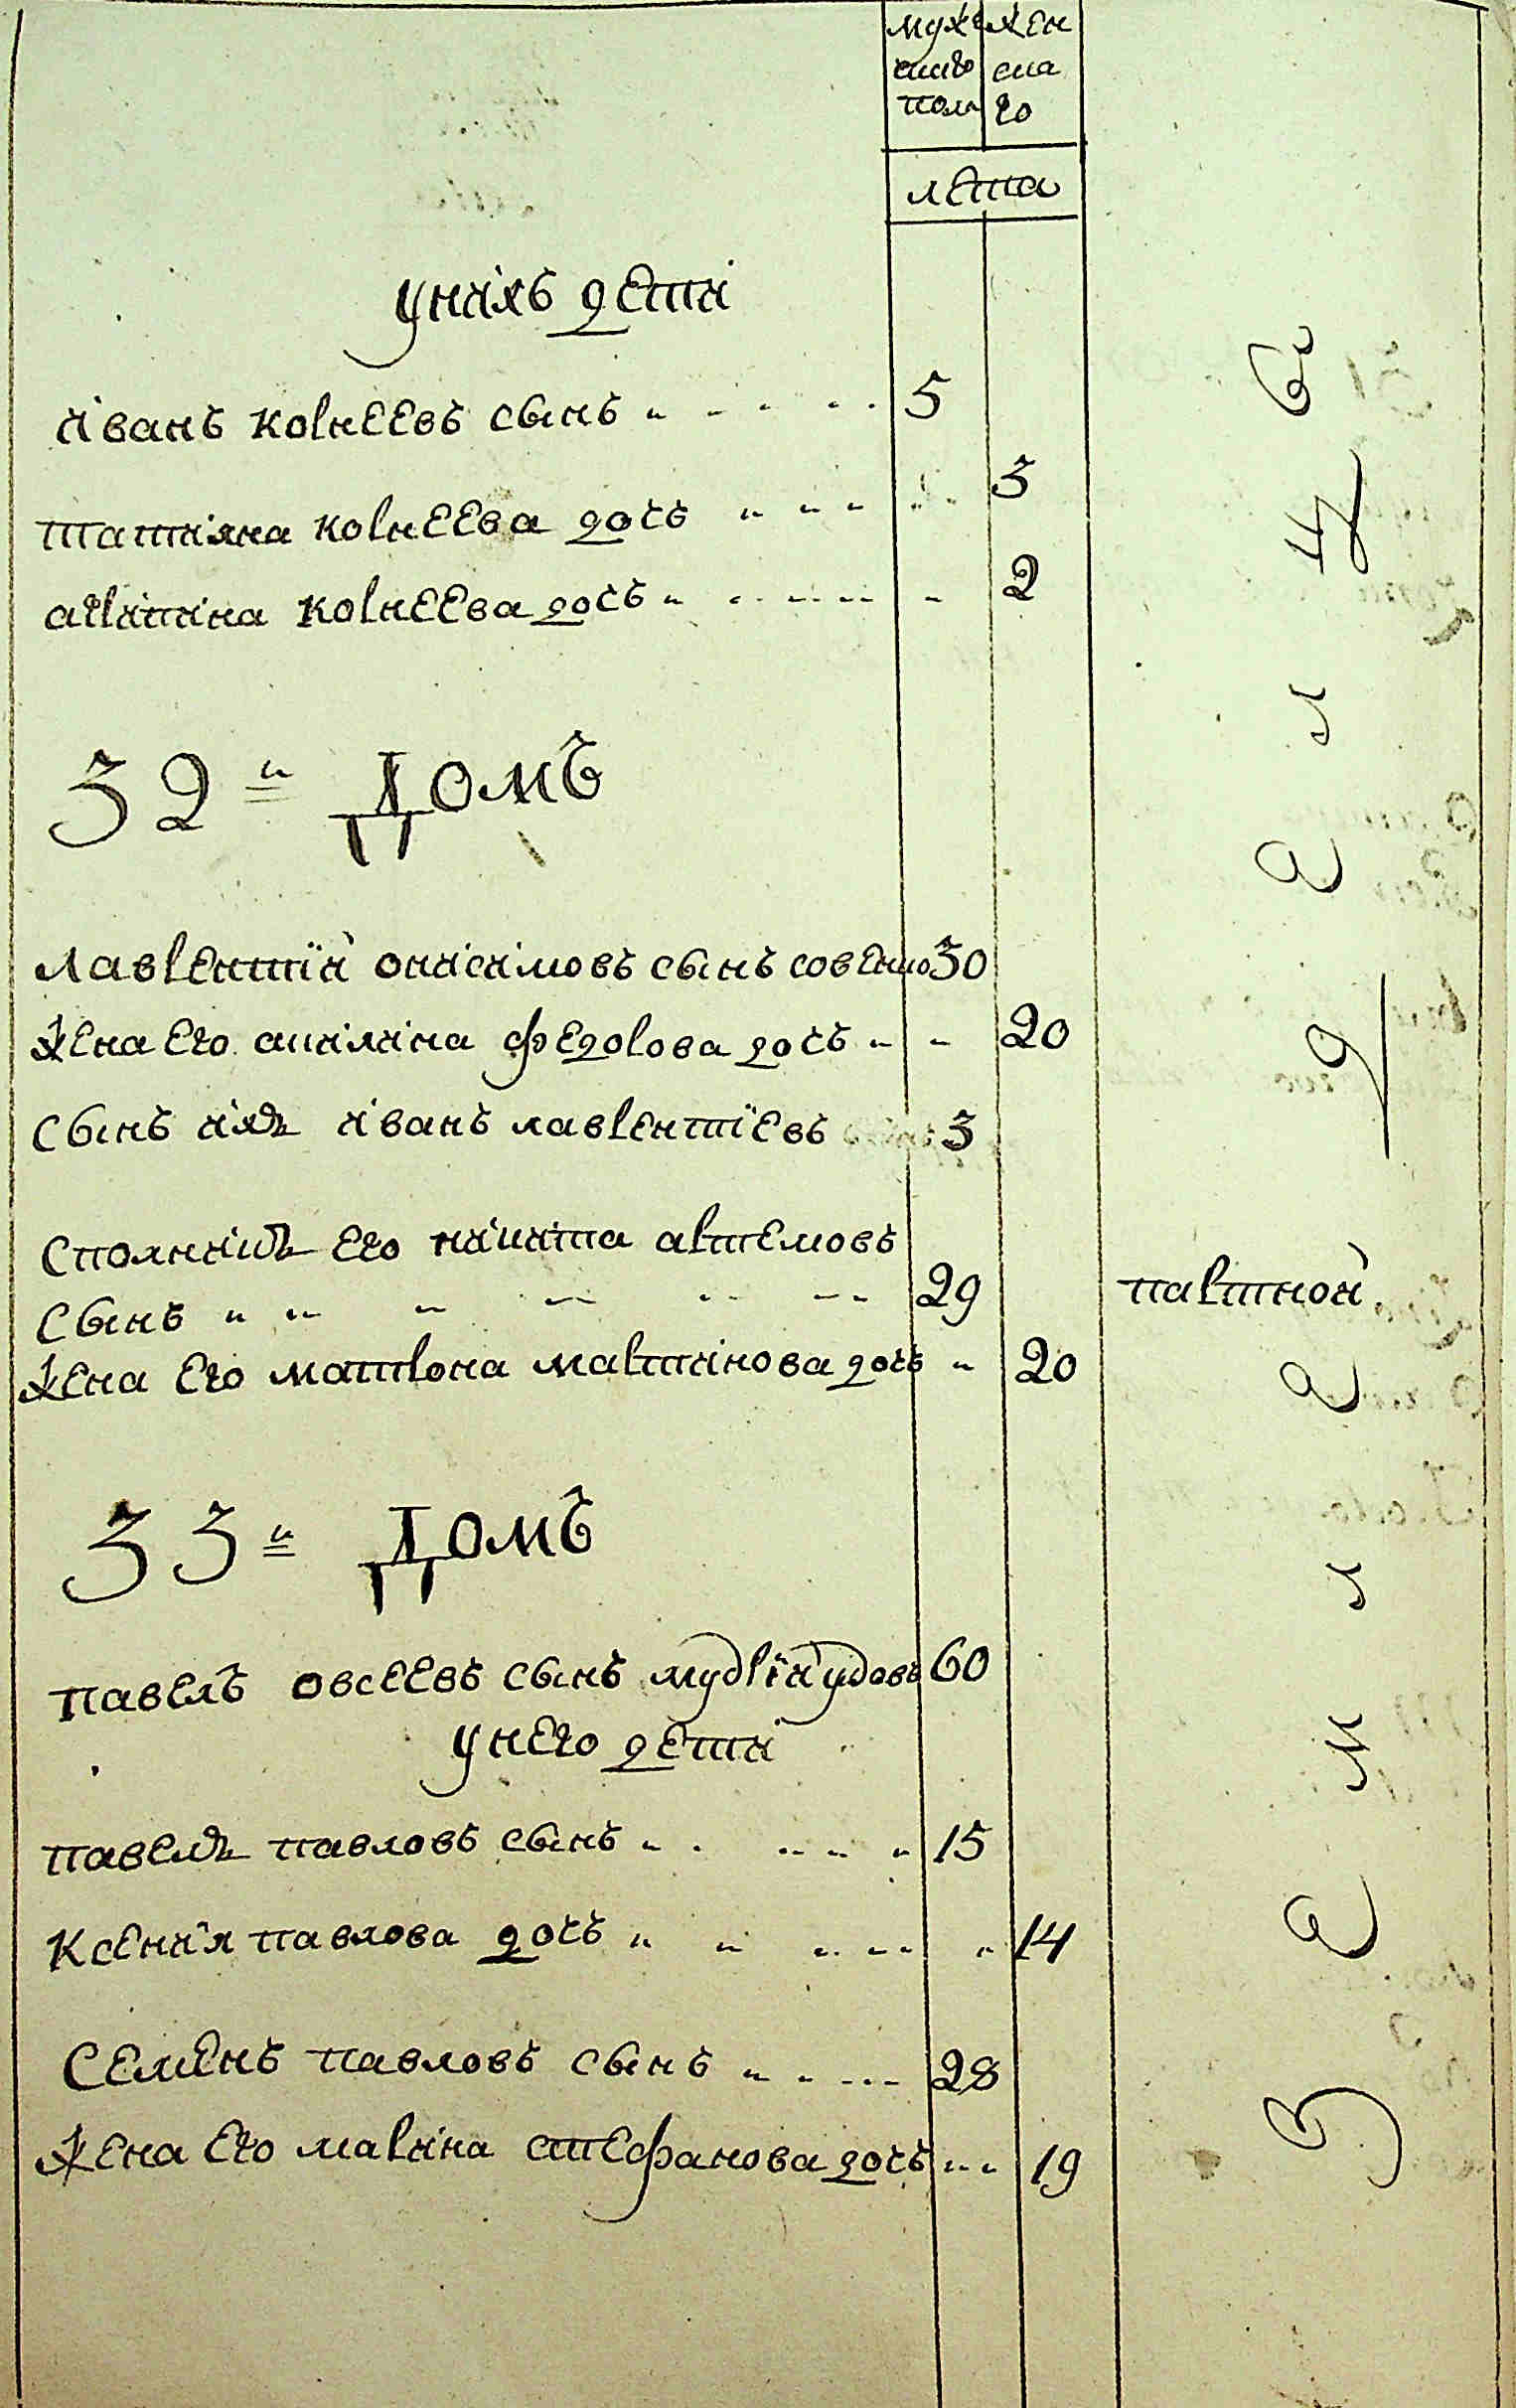 муже жен
скаго ска
пола го
лета
унихъ дети
иванъ корнеевъ сынъ 5
татияна корнеева дочъ 3
агрипина корнеева дочъ 2
32 й домъ
лаврентїй онисимовъ сынъ 30
жена его акилина федорова дочъ 20
сынъ ихъ иванъ лаврентїевъ 3
сполникъ его никита артемовъ
сынъ 29 партной
жена его матрона мартинова дочъ 20
33 й домъ
павелъ овсеевъ сынъ мудрїй удовъ 60
унего дети
павелъ павловъ сынъ 15
ксения павлова дочъ 14
семенъ павловъ сынъ 28
жена его марина стефанова дочъ 19